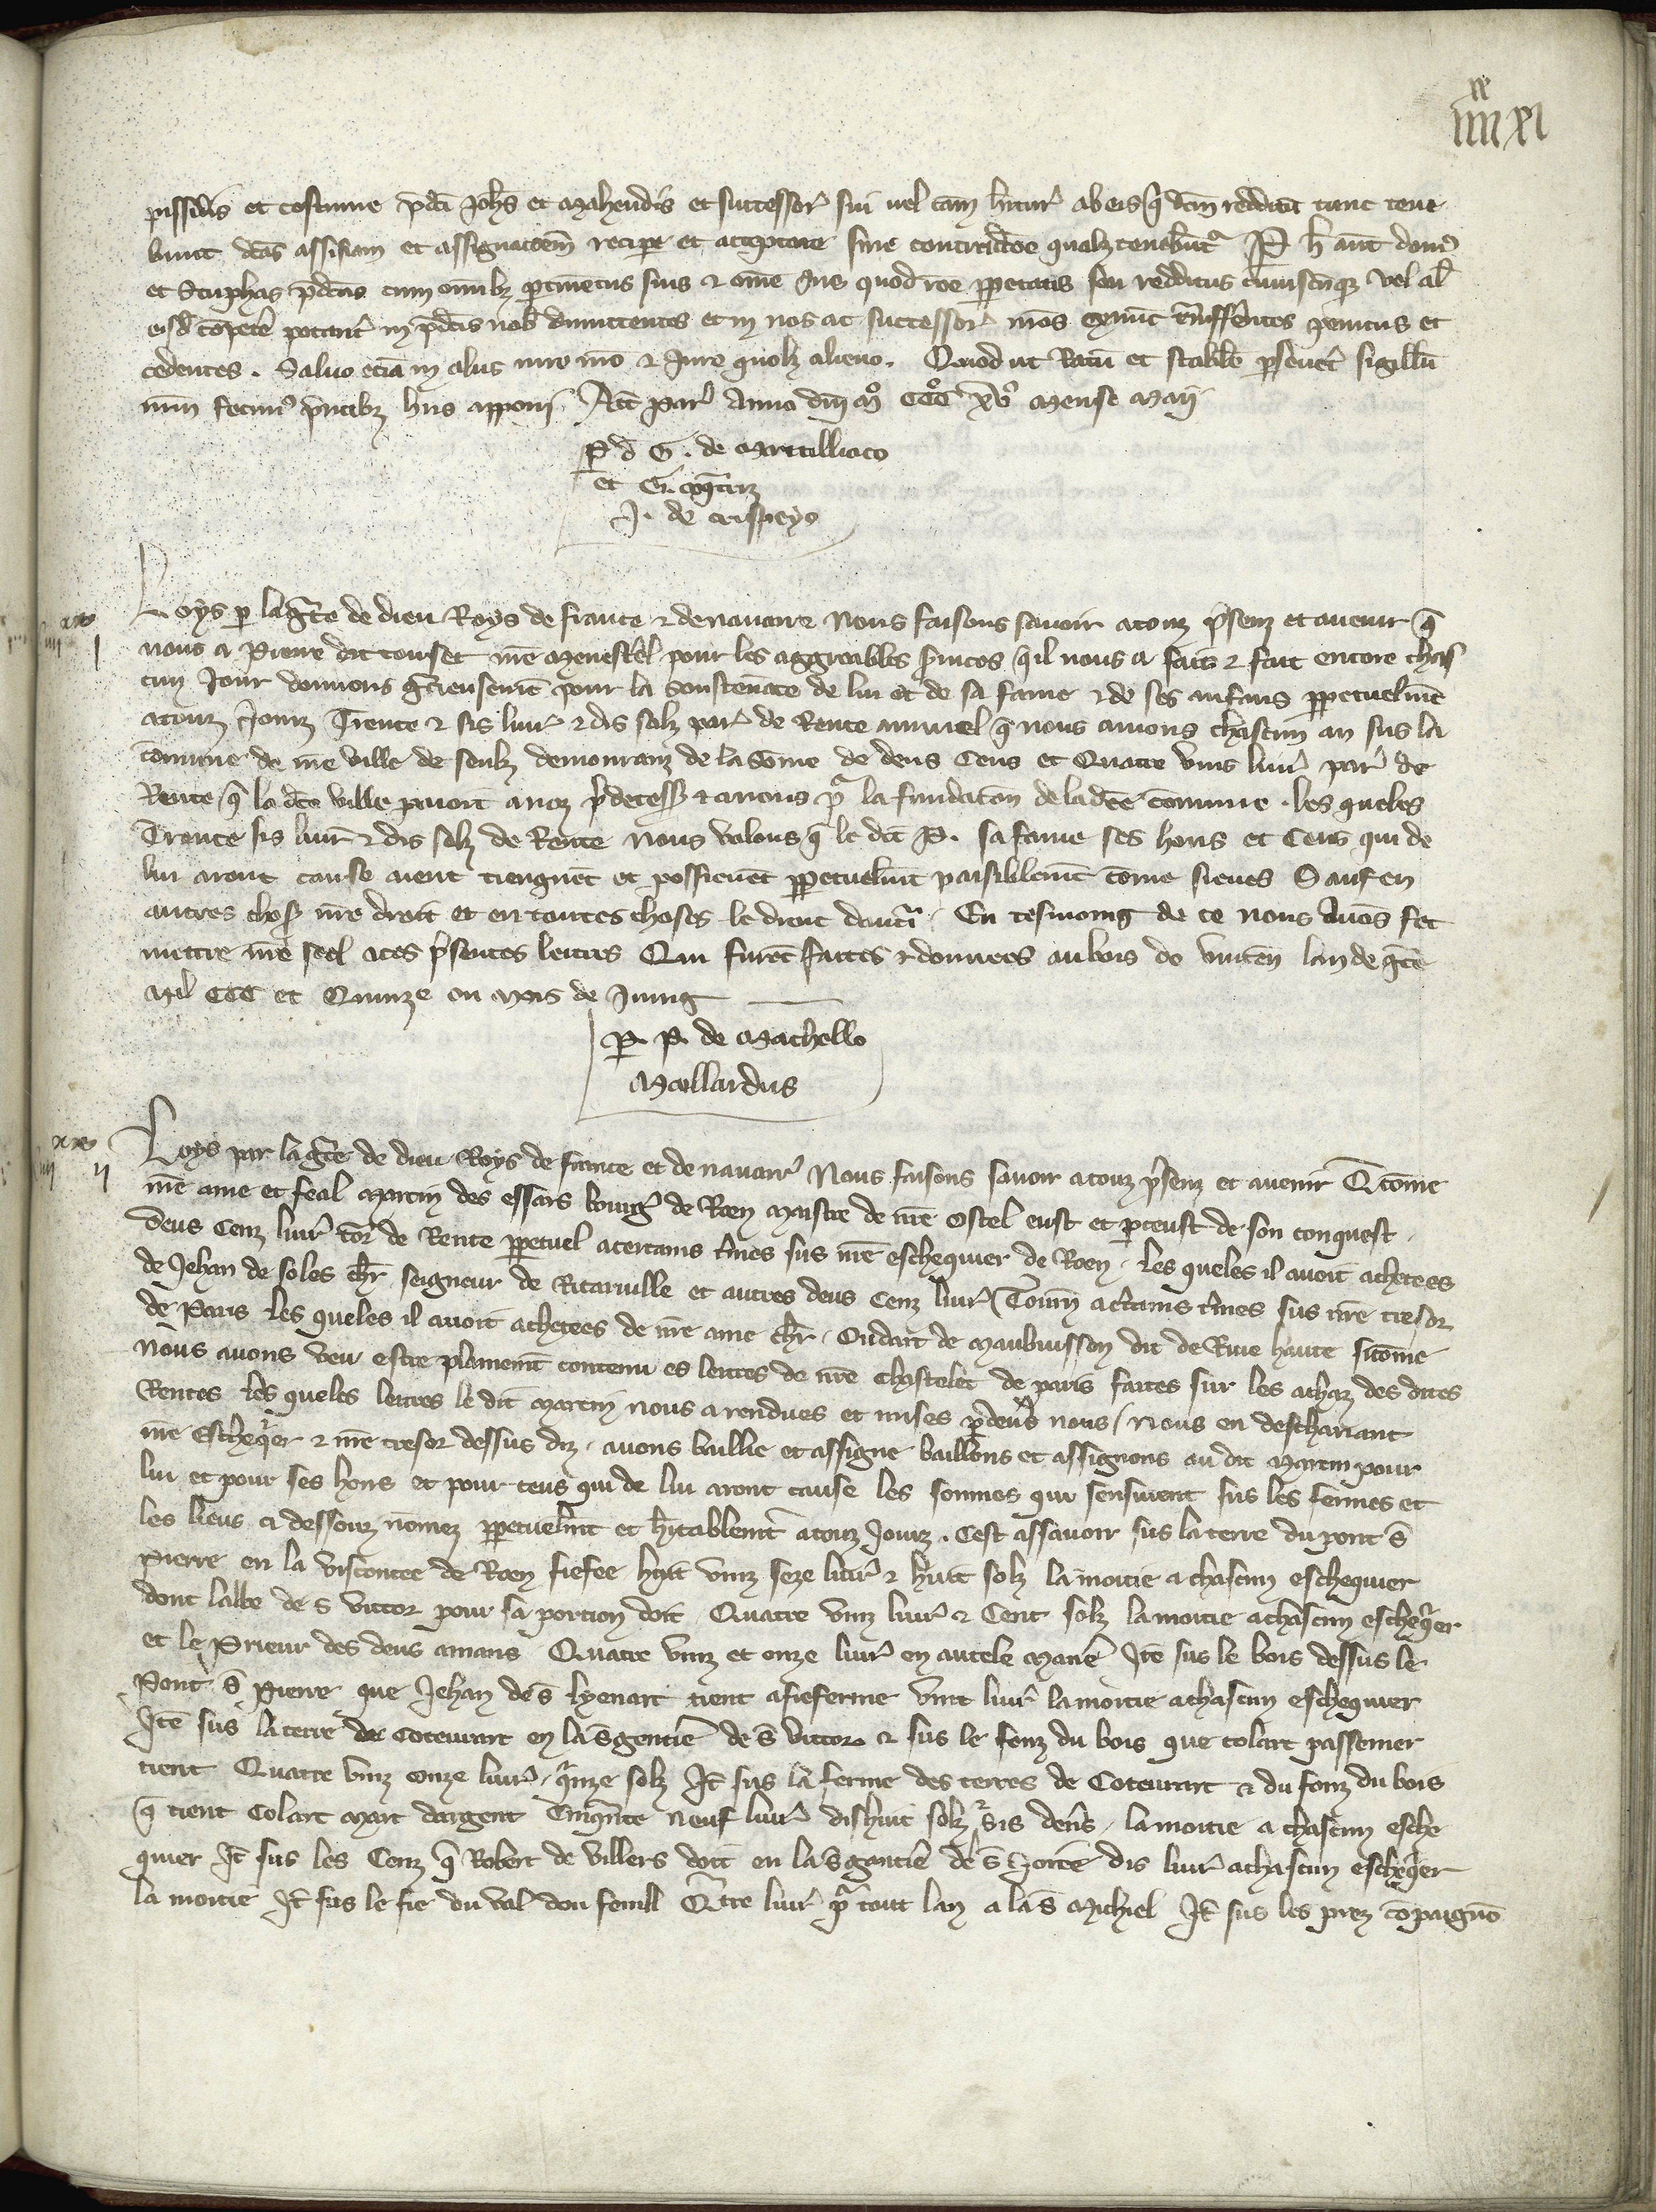 xx
IIII XI
et costume p̄dc̄i Joh̄s et Mahendis et successor̄ sui uel cam̄ h̄ntur̄ ab eis q̄ dc̄m redditū tunc tene
bunt dc̄as assisiam et assignac̄oem̄ recipe et acceptare sine contradc̄oe qualz tenebūtr̄ P h̄ aut̄ domū
et Stuphas p̄dc̄as cum om̄ibz ꝑtinēciis suis ⁊ om̄e Jus quod rōe ꝓp̄etatis seu redditus cuiuscūqz vel al̄
eisd̄ cōpetē̄ poterat̄ in p̄dc̄is nob̄ dimittentes et in nos ac successor̄ nr̄os exnūc tn̄sffērētes penitus et
cedentes. Saluo etiā in aliis iure nr̄o ⁊ Jure quolz alieno. Quod ut Ratū et stabile ꝑseuēt sigillū
nr̄m fecim᷒ p̄ntibz lr̄is apponi Act̄ par̄ Anno dn̄i Mo CCCo XVo Mense Maii
P d̄ G. de Martilliaco
et G.
J. de Crispeyo
xx
IIII I
Loys ꝑ la gc̄e de dieu Roys de france ⁊ de nauarre Nous faisons sauoir a touz p̄senz et auenir q̄
nous a Pierre dit touset nr̄e Menestrel pour les aggreables s̄uices q̄ il nous a faitz ⁊ fait encore chas
cun Jour donnons gc̄ieusemt̄ pour la soustenāce de lui et de sa fame ⁊ de ses enfans ꝑpetuelmt̄
a touz Jourz Trente ⁊ sis liur̄ ⁊ dis solz par̄ de Rente annuel q̄ nous auions chascun an sus la
cōmune de nr̄e ville de senliz demouranz de la sōme de deus Cens et Quatre vins liur̄ par̄ de
Rente q̄ la dc̄e ville paioit a noz p̄decess̄ ⁊ a nous pr̄ la fundac̄on de la dc̄e cōmune. les queles
Trente sis liur̄ ⁊ dis solz de Rente Nous volons q̄ le dit P. sa fame ses hoirs et Ceus qui de
lui aront cause aient tiengnēt et possieuēt ꝑpetuelmt̄ paisiblemt̄ cōme sieues Sauf en
autres chos̄ nr̄e droit et en toutes choses le droit dautr̄i. En tesmoing de ce nous Auōs fet
mettre nr̄e seel a ces p̄sentes lettres Qui furēt faites ⁊ donnees au bois de vincēn lan de gc̄e
Mil CCC et Quinze ou Mois de Juing
P. P. de Machello
Maillardus
xx
IIII II
Loys par la gc̄e de dieu Roys de france et de nauarr̄ Nous faisons sauoir a touz p̄senz et auenir Q̄ cōme
nr̄e ame et feal Martin des essars bourḡ de Roen Maistre de nr̄e Ostel eust et ꝑceust de son conquest
deus Cenz liur̄ tor̄ de Rente ꝑpetuel a certains t̄mes sus nr̄e eschequier de Roen. les queles il auoit achetees
de Jehan de soles ch̄r seigneur de Ricaruille et autres deus Cenz liur̄ Tourn̄ a c̄tains t̄mes sus nr̄e tresor
de Paris les queles il auoit achetees de nr̄e ame ch̄r Oudart de Maubuisson dit de Rue haute si cōme
nous auons veu estre plainemt̄ contenu es lettres de nr̄e Chastelet de paris faites sur les achaz des dites
Rentes les queles lettres le dit Martin nous a rendues et mises ꝑdeu̅s nous. Nous en deschariant
nr̄e Eschequier ⁊ nr̄e tresor dessus diz. auons baillie et assigne baillons et assignons au dit Martin pour
lui et pour ses hoirs et pour ceus qui de lui aront cause les sommes qui sensuient sus les fermes et
les lieus ci dessouz nomez ꝑpetuelmt̄ et h̄itablemt̄ a touz Jourz. Cest assauoir sus la terre du pont s̄
Pierre en la viscontee de Roen fiefee huit vinz seze liur̄ ⁊ huit solz la moitie a chascun eschequier
dont labbe de s̄ victor pour sa portion doit Quatre vinz liur̄ ⁊ Cent solz la moitie a chascun escheq̄er
et le Prieur des deus amans Quatre vinz et onze liur̄ en autele Manier̄ Itē sus le bois dessus le
Pont s̄ Pierre que Jehan de s̄ lyenart tient a fieferme vint liur̄ la moitie a chascun eschequier
Itē sus la terre de Coteurart en la s̄gentie de s̄ victor ⁊ sus le fonz du bois que colart passemer
tient Quatre vinz onze liur̄. q̄nze solz It̄ sus la ferme des terres de Coteurart ⁊ du fonz du bois
q̄ tient Colart Mart dargent Cinquāte neuf liur̄ dishuit solz ⁊ sis den̄s. la moitie a chascun esche
quier It̄ sus les Cenz q̄ Robert de villers doit en la s̄gantie de s̄ dis liur̄ a chascun escheq̄er
la moitie It̄ sus le fie du val dou fenill Qatre liur̄ pr̄ tout lan a la s̄ Michiel It̄ sus les prez cōpaignō